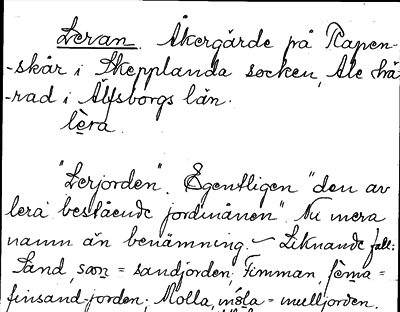 Leran. Åkergärde på Rapen-
-skår i Skepplanda socken, Ale hä
-rad i Älfsborgs län.
lèra.
"Lerjorden". Egentligen "den av
lera bestående jordmånen". Nu mera
namn än benämning. – Liknande fall:
Sand, san = sandjorden; Fimman, fema =
finsand-jorden; Molla, mola = mulljorden.